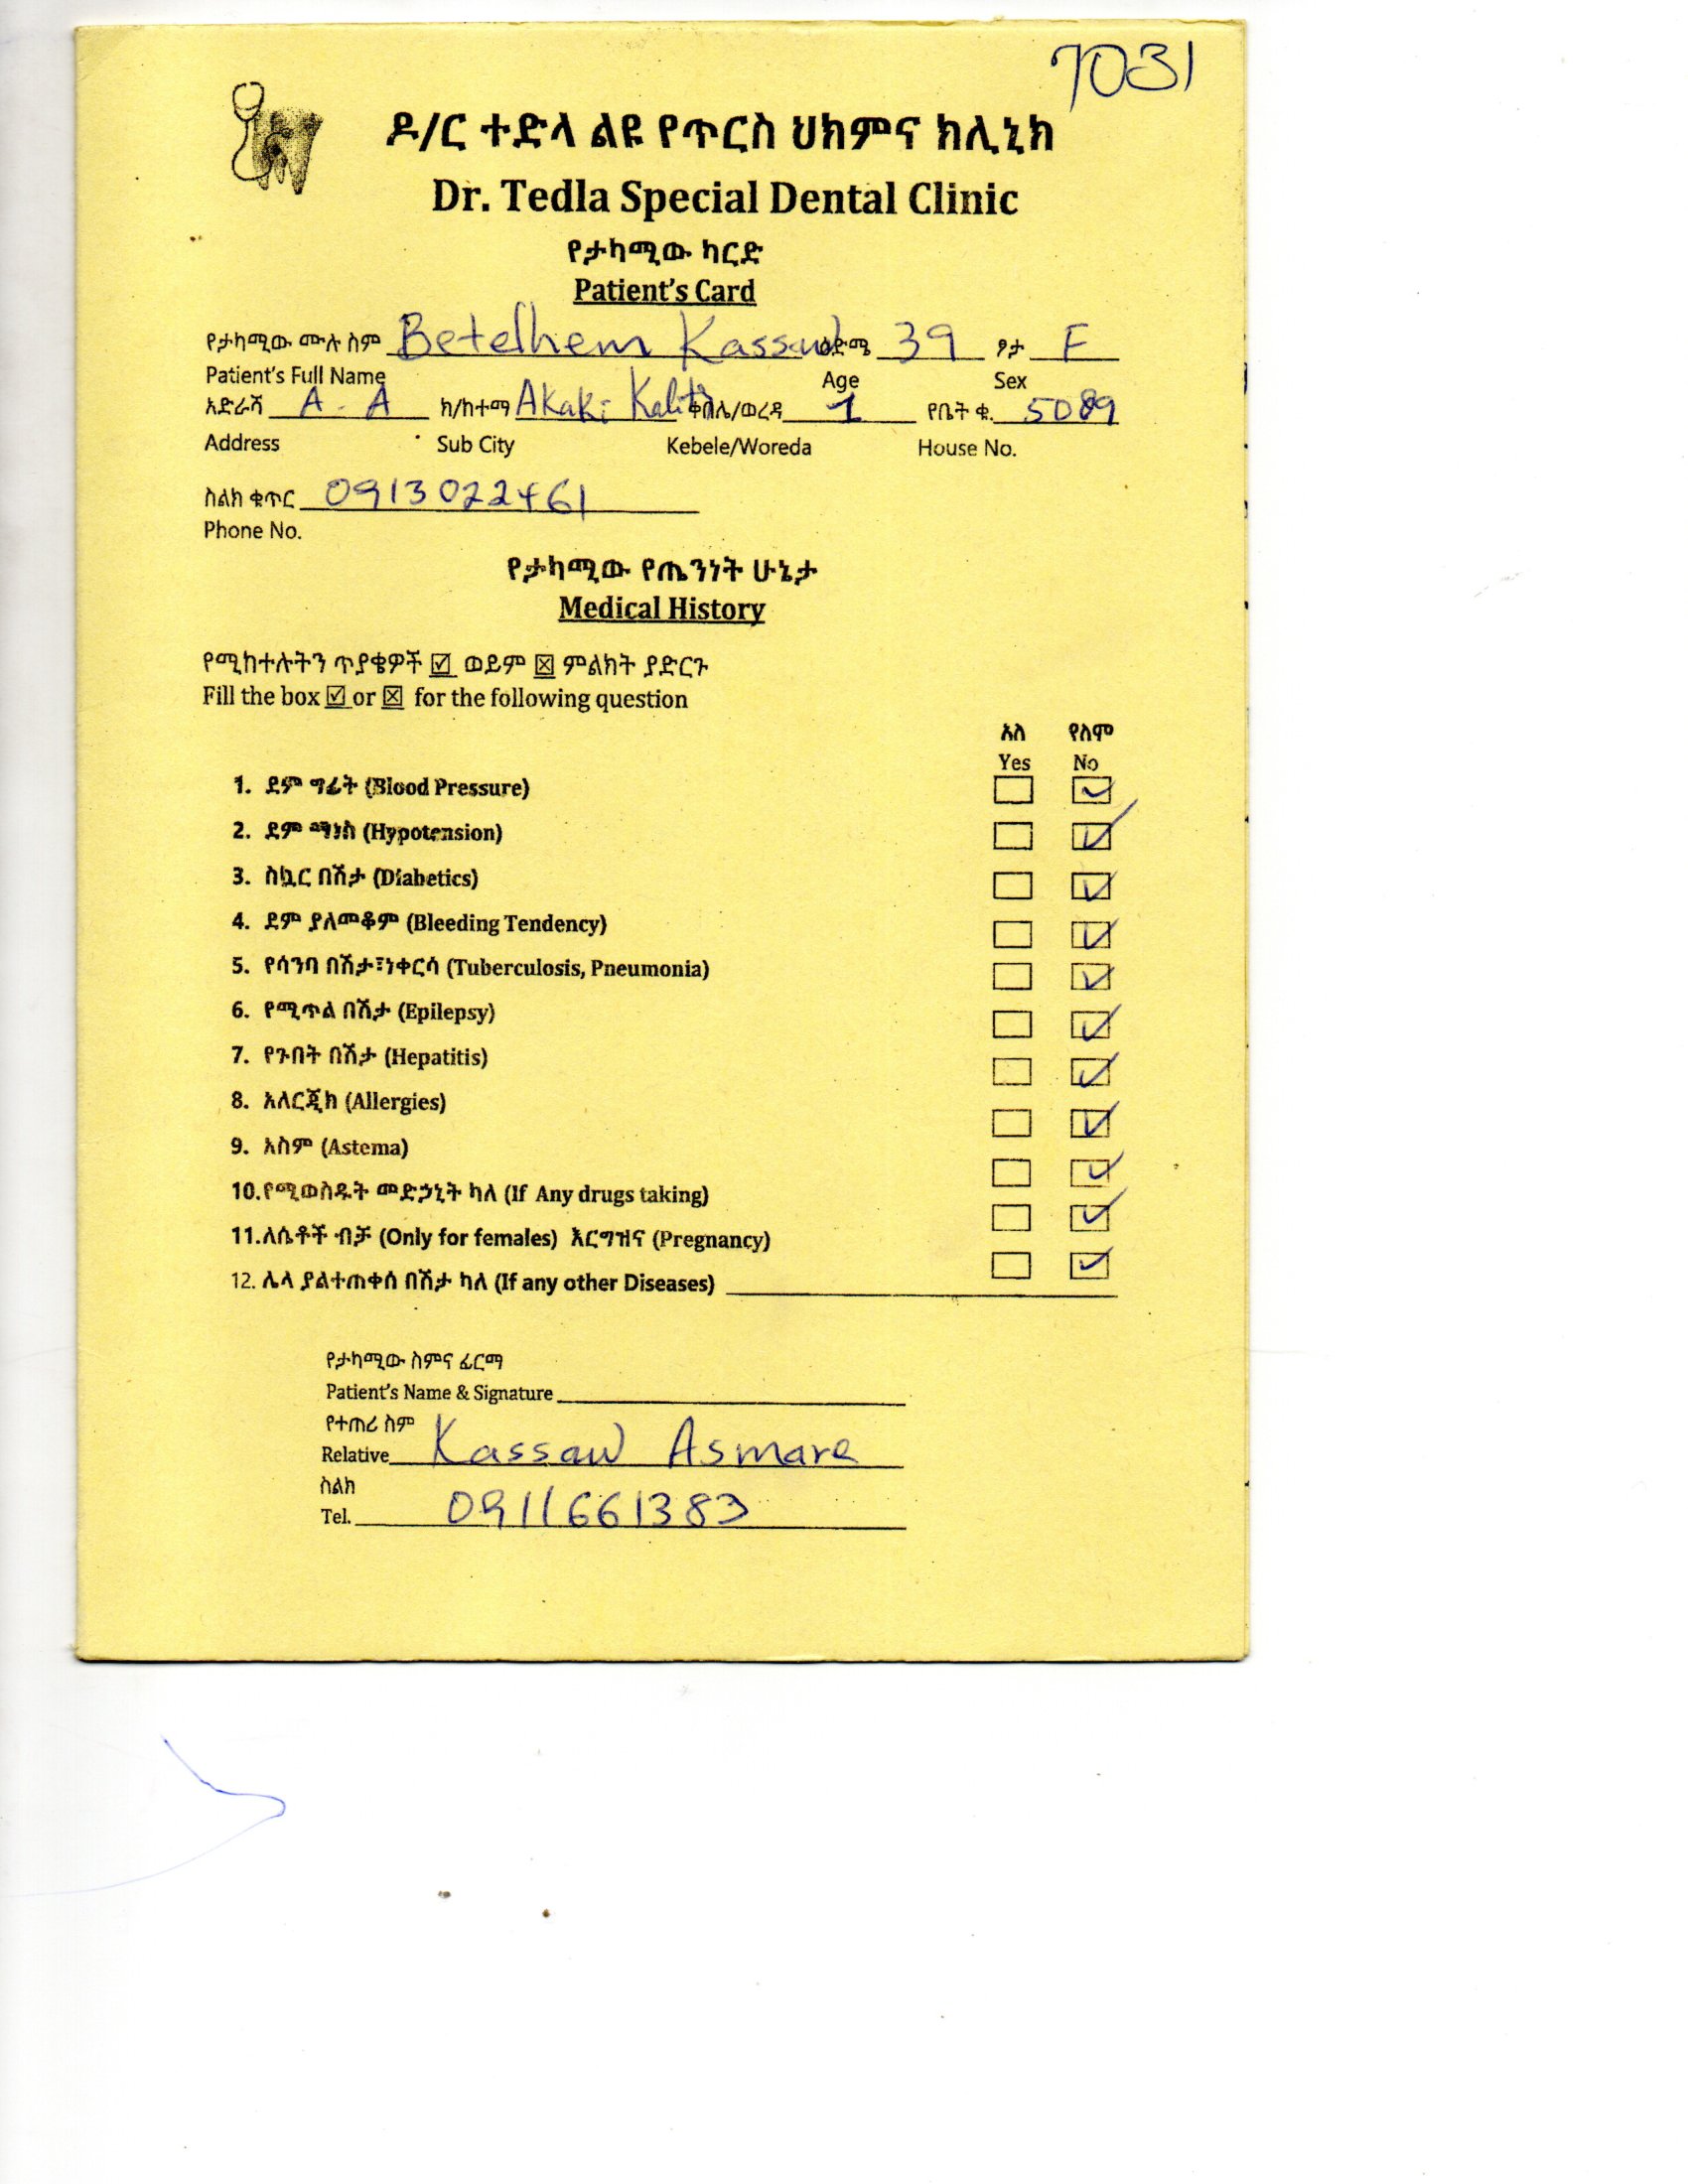 7031
ዶ/ር ተድላ ልዩ የጥርስ ህክምና ክሊኒክ
Dr. Tedla Special Dental Clinic
የታካሚው ካርድ
Patient's Card
የታካሚው ሙሉ ስም Betelhem Kassaw ዕድሜ 39 ፆታ F
Patient's Full Name Age Sex
አድራሻ A. A ክ/ከተማ Akaki Kality ቀበሌ/ወረዳ 1 የቤት ቁ. 5089
Address Sub City Kebele/Woreda House No.
ስልክ ቁጥር 0913022461
Phone No.
የታካሚው የጤንነት ሁኔታ
Medical History
የሚከተሉትን ጥያቄዎች ☑ ወይም ☒ ምልክት ያድርጉ
Fill the box ☑ or ☒ for the following question
አለ የለም
Yes No
1. ደም ግፊት (Blood Pressure) ☐ ☑
2. ደም ማነስ (Hypotension) ☐ ☑
3. ስኳር በሽታ (Diabetics) ☐ ☑
4. ደም ያለመቆም (Bleeding Tendency) ☐ ☑
5. የሳንባ በሽታ፣ነቀርሳ (Tuberculosis, Pneumonia) ☐ ☑
6. የሚጥል በሽታ (Epilepsy) ☐ ☑
7. የጉበት በሽታ (Hepatitis) ☐ ☑
8. አለርጂክ (Allergies) ☐ ☑
9. አስም (Astema) ☐ ☑
10.የሚወስዱት መድኃኒት ካለ (If Any drugs taking) ☐ ☑
11.ለሴቶች ብቻ (Only for females) እርግዝና (Pregnancy) ☐ ☑
12. ሌላ ያልተጠቀሰ በሽታ ካለ (If any other Diseases)
የታካሚው ስምና ፊርማ
Patient's Name & Signature
የተጠሪ ስም
Relative Kassaw Asmare
ስልክ
Tel. 0911661383